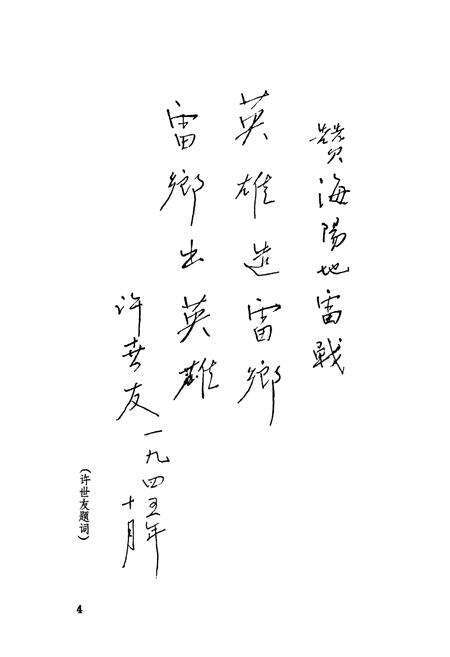 赞海陽地雷戰
英雄造雷鄉
雷鄉出英雄
许世友
一九四五年
十月
(许世友题词)
4